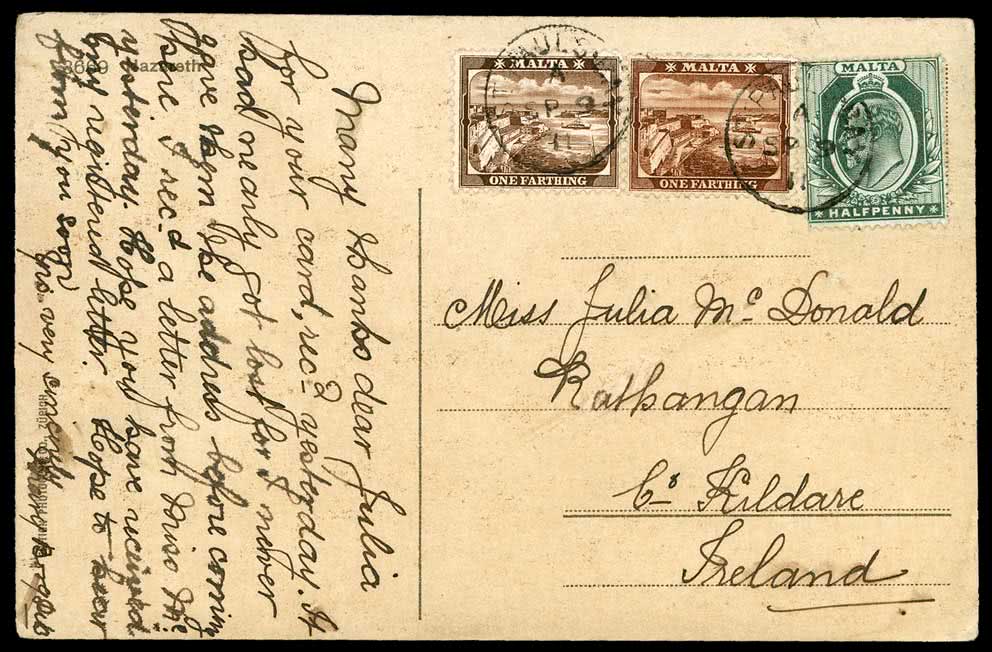 Many thanks dear Julia
for your card, rec.d yesterday. It
had nearly got lost for I never
gave them the address before coming
here. I rec.d a letter from Miss Mc
yesterday. Hope you have received
my registered letter. Hope to hear
from you soon
yrs very sincerely
13669 Nazareth
MALTA
ONE FARTHING
MALTA
ONE FARTHING
MALTA
HALFPENNY
A
SP 9
11
A
SP 9
11
Miss Julia Mc Donald
Rathangan
Co Kildare
Ireland